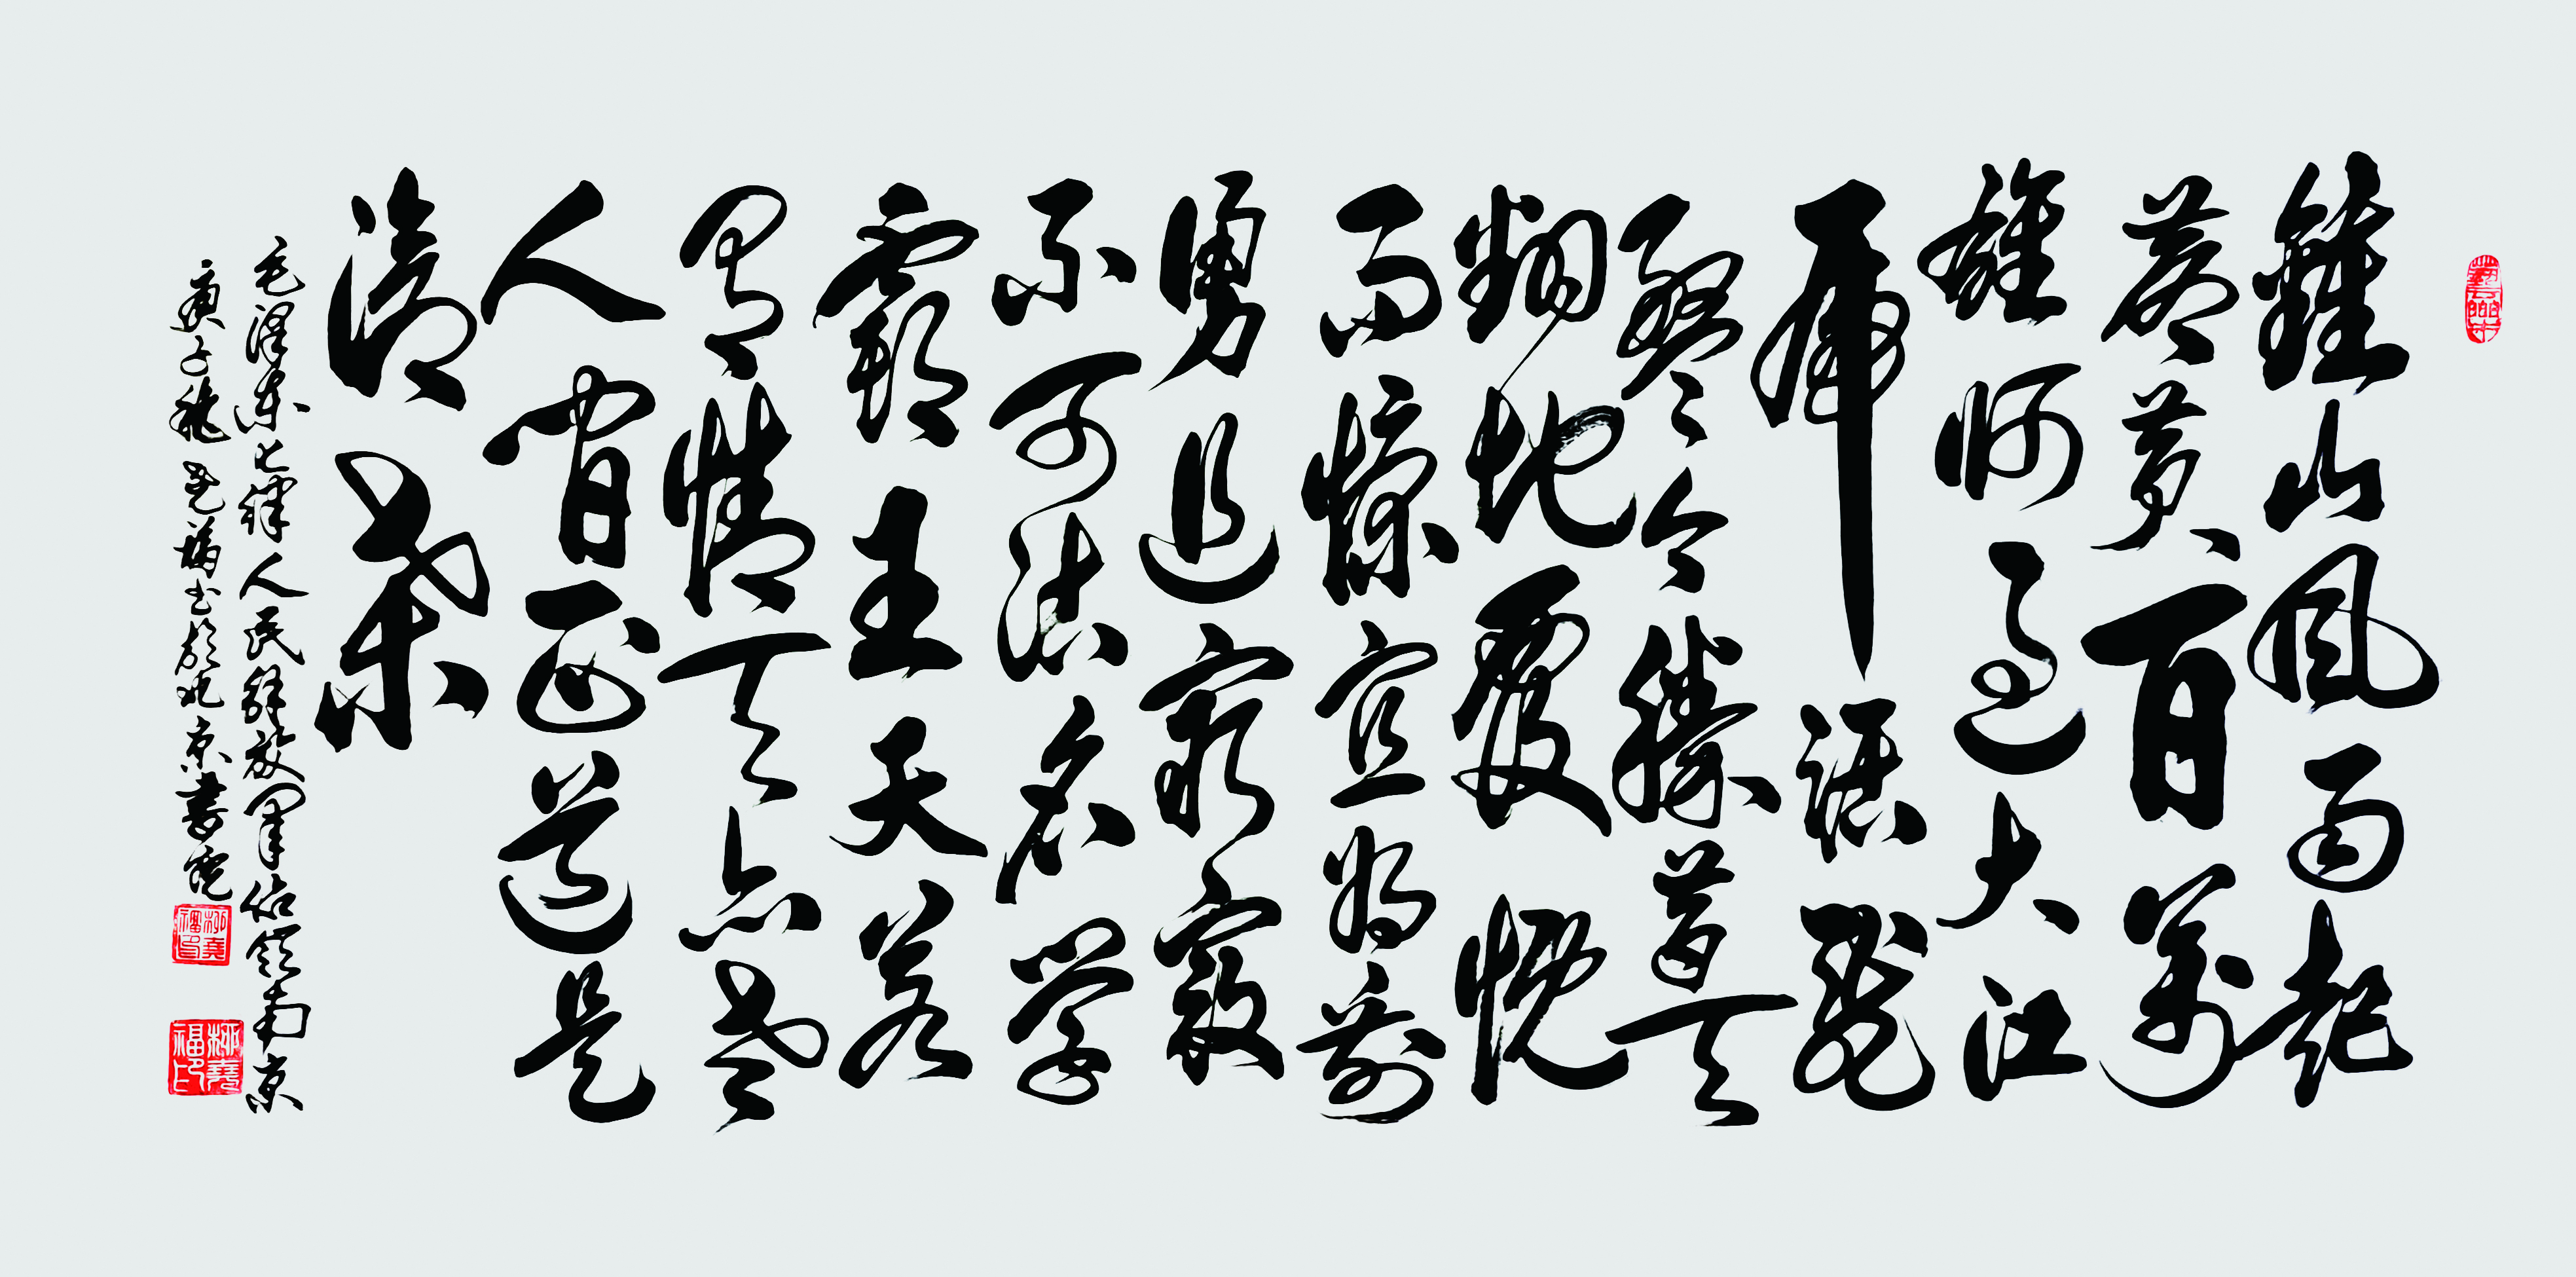 鍾山風雨起
蒼黄百萬
雄師過大江
虎踞龍
盤今勝昔天
翻地覆慨
而慷宜将剩
勇追窮寇
不可沽名学
霸王天若
有情天亦老
人間正道是
滄桑
毛澤東七律人民解放軍佔領南京
庚子秋堯福书於北京書院
柳堯福印
柳堯福印